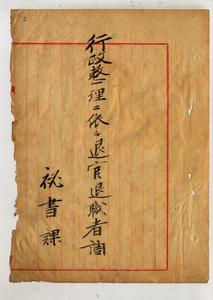 行政整理ニ依ル退官退職者調
秘書課